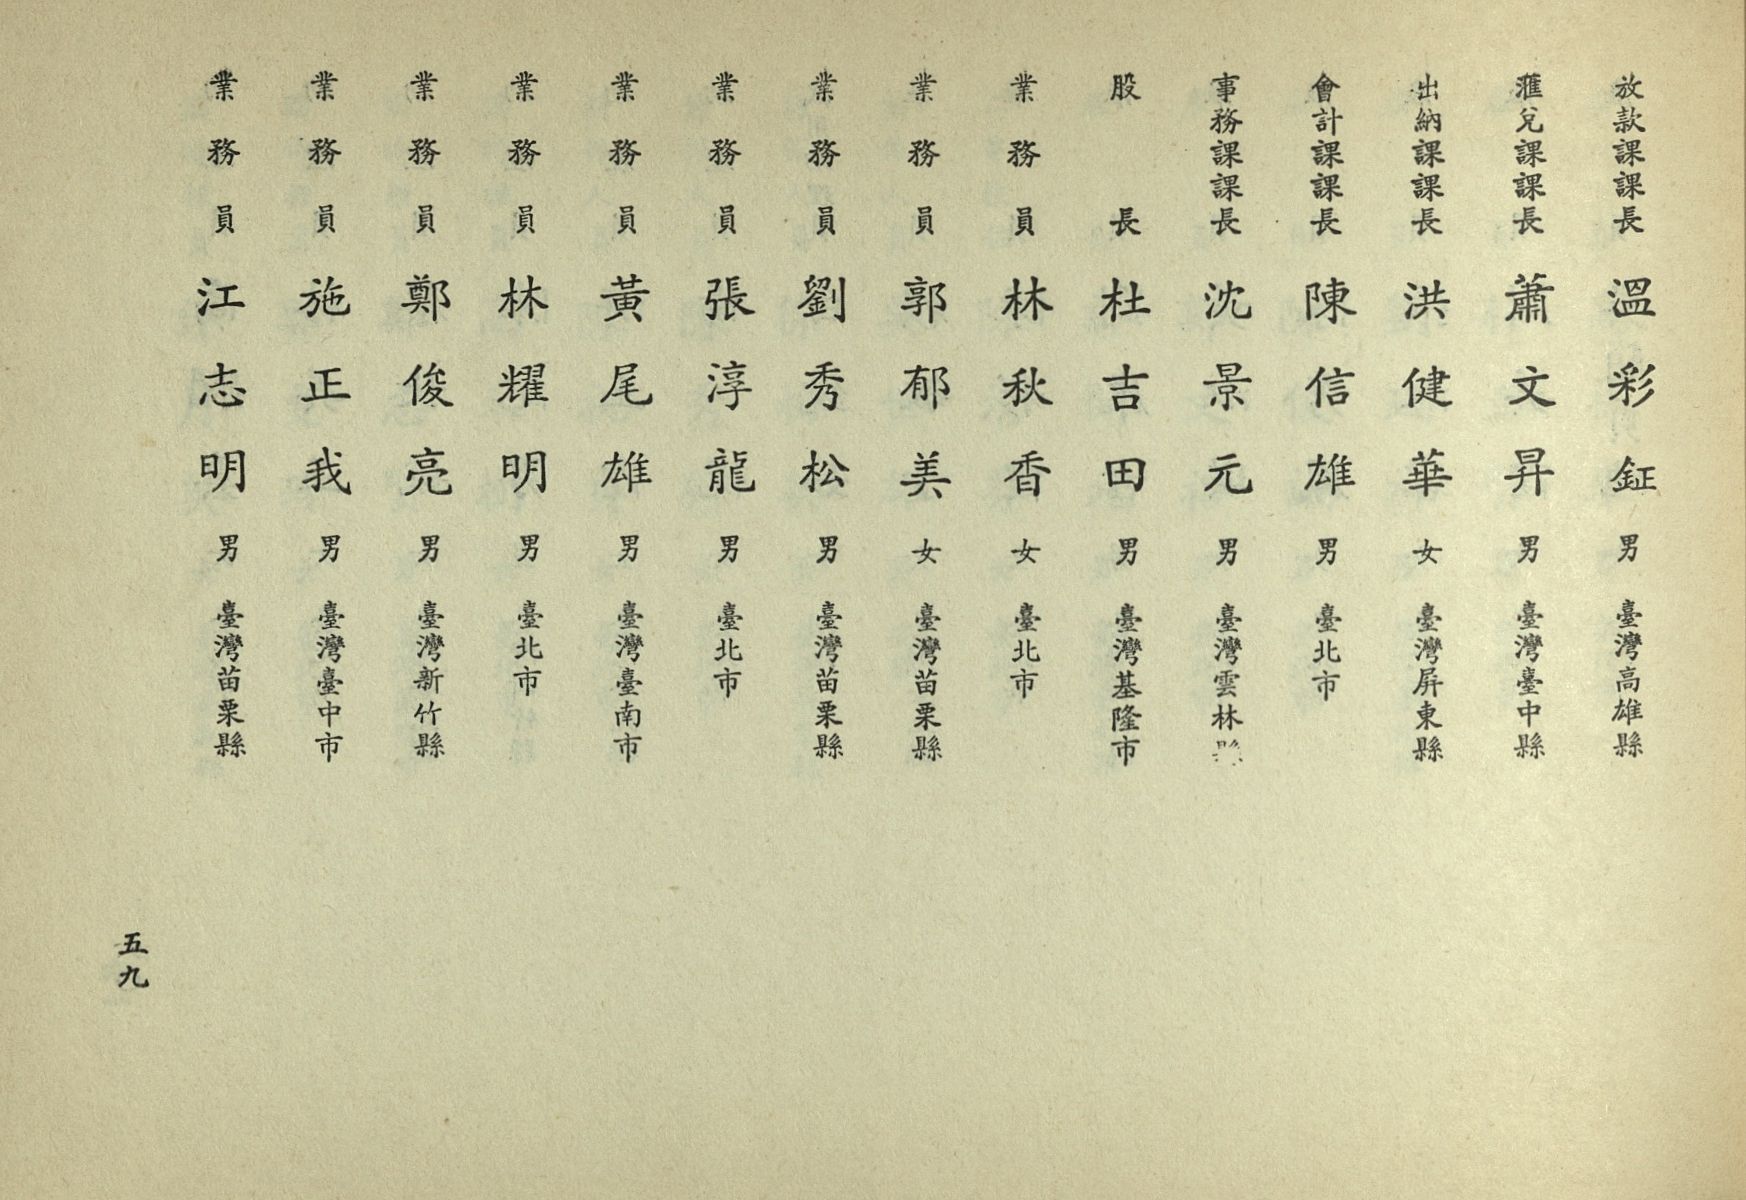 放款課課長 溫彩鉦 男 臺灣高雄縣
滙兌課課長 蕭文昇 男 臺灣臺中縣
出納課課長 洪健華 女 臺灣屏東縣
會計課課長 陳信雄 男 臺北市
事務課課長 沈景元 男 臺灣雲林縣
股長 杜吉田 男 臺灣基隆市
業務員 林秋香 女 臺北市
業務員 郭郁美 女 臺灣苗栗縣
業務員 劉秀松 男 臺灣苗栗縣
業務員 張淳龍 男 臺北市
業務員 黃尾雄 男 臺灣臺南市
業務員 林耀明 男 臺北市
業務員 鄭俊亮 男 臺灣新竹縣
業務員 施正我 男 臺灣臺中市
業務員 江志明 男 臺灣苗栗縣
五九